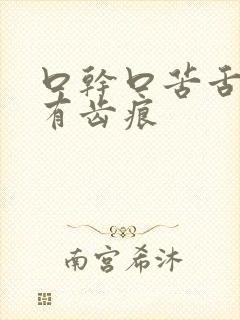 口幹口苦舌
有齿痕
南宫希沐